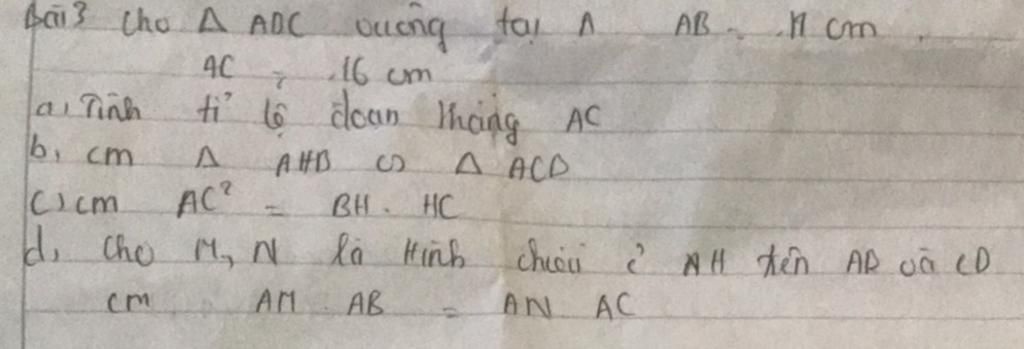 Bài 3 cho Δ ABC vuông tại A AB = 12 cm.
AC = 16 cm
a, Tính tỉ lệ đoạn thẳng AC
b, cm Δ AHB ∽ Δ ACD
c) cm AC² = BH. HC
d, cho M, N là Hình chiếu ? AH trên AB và CD
cm AM. AB = AN AC